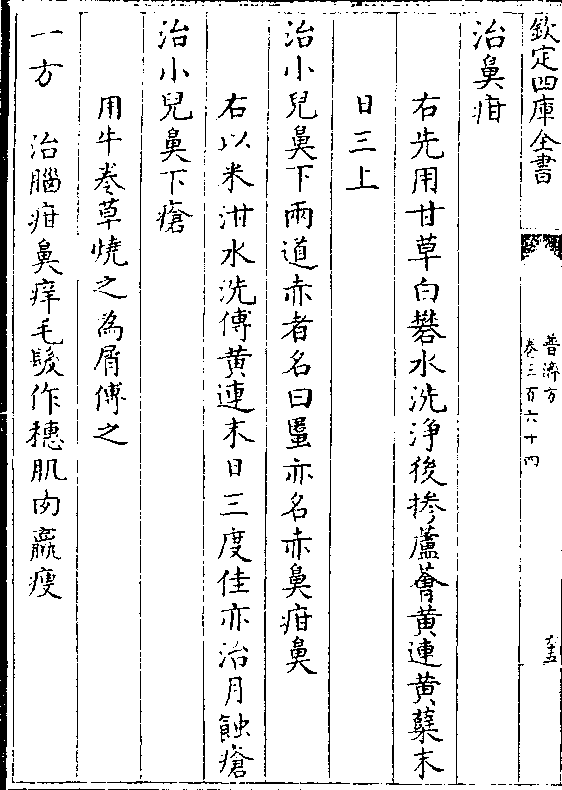 欽定四庫全書
普濟方
卷三百六十四
治鼻疳
右先用甘草白礬水洗浄後摻蘆薈黄連黄蘗末
日三上
治小兒鼻下兩道赤者名曰䘌亦名赤鼻疳鼻
右以米泔水洗傅黄連末日三度佳亦治月蝕瘡
治小兒鼻下瘡
用牛巻草燒之為屑傅之
一方　治腦疳鼻痒毛髮作穗肌肉羸瘦